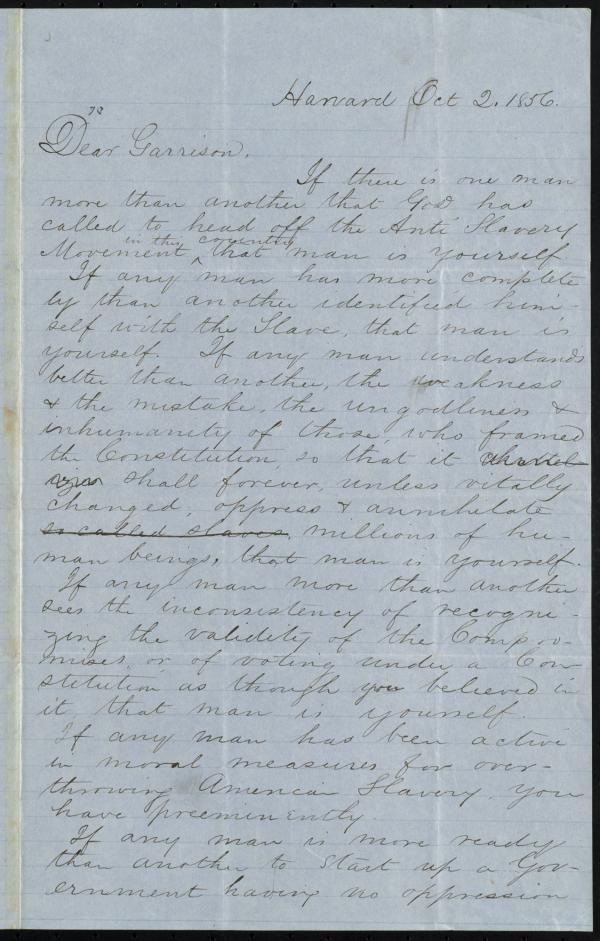 Harvard Oct 2. 1856.
Dear Garrison.
If there is one man
more than another that God has
called to head off the Anti Slavery
in this country
Movement ^ that man is yourself
If any man has more complete
ly than another identified him-
self with the Slave, that man is
yourself. If any man understands
better than another, the weakness
& the mistake, the ungodliness &
inhumanity of those, who framed
the Constitution, so that it
shall forever, unless vitally
changed, oppress & annihilate
so called slaves, millions of hu-
man beings, that man is yourself.
If any man more than another
sees the inconsistency of recogni-
zing the validity of the Compro-
mises, or of voting under a Con-
stitution as though you believed in
it, that man is yourself.
If any man has been active
in moral measures for over-
throwing American Slavery you
have preeminently.
If any man is more ready
than another to start up a Gov-
ernment having no oppression